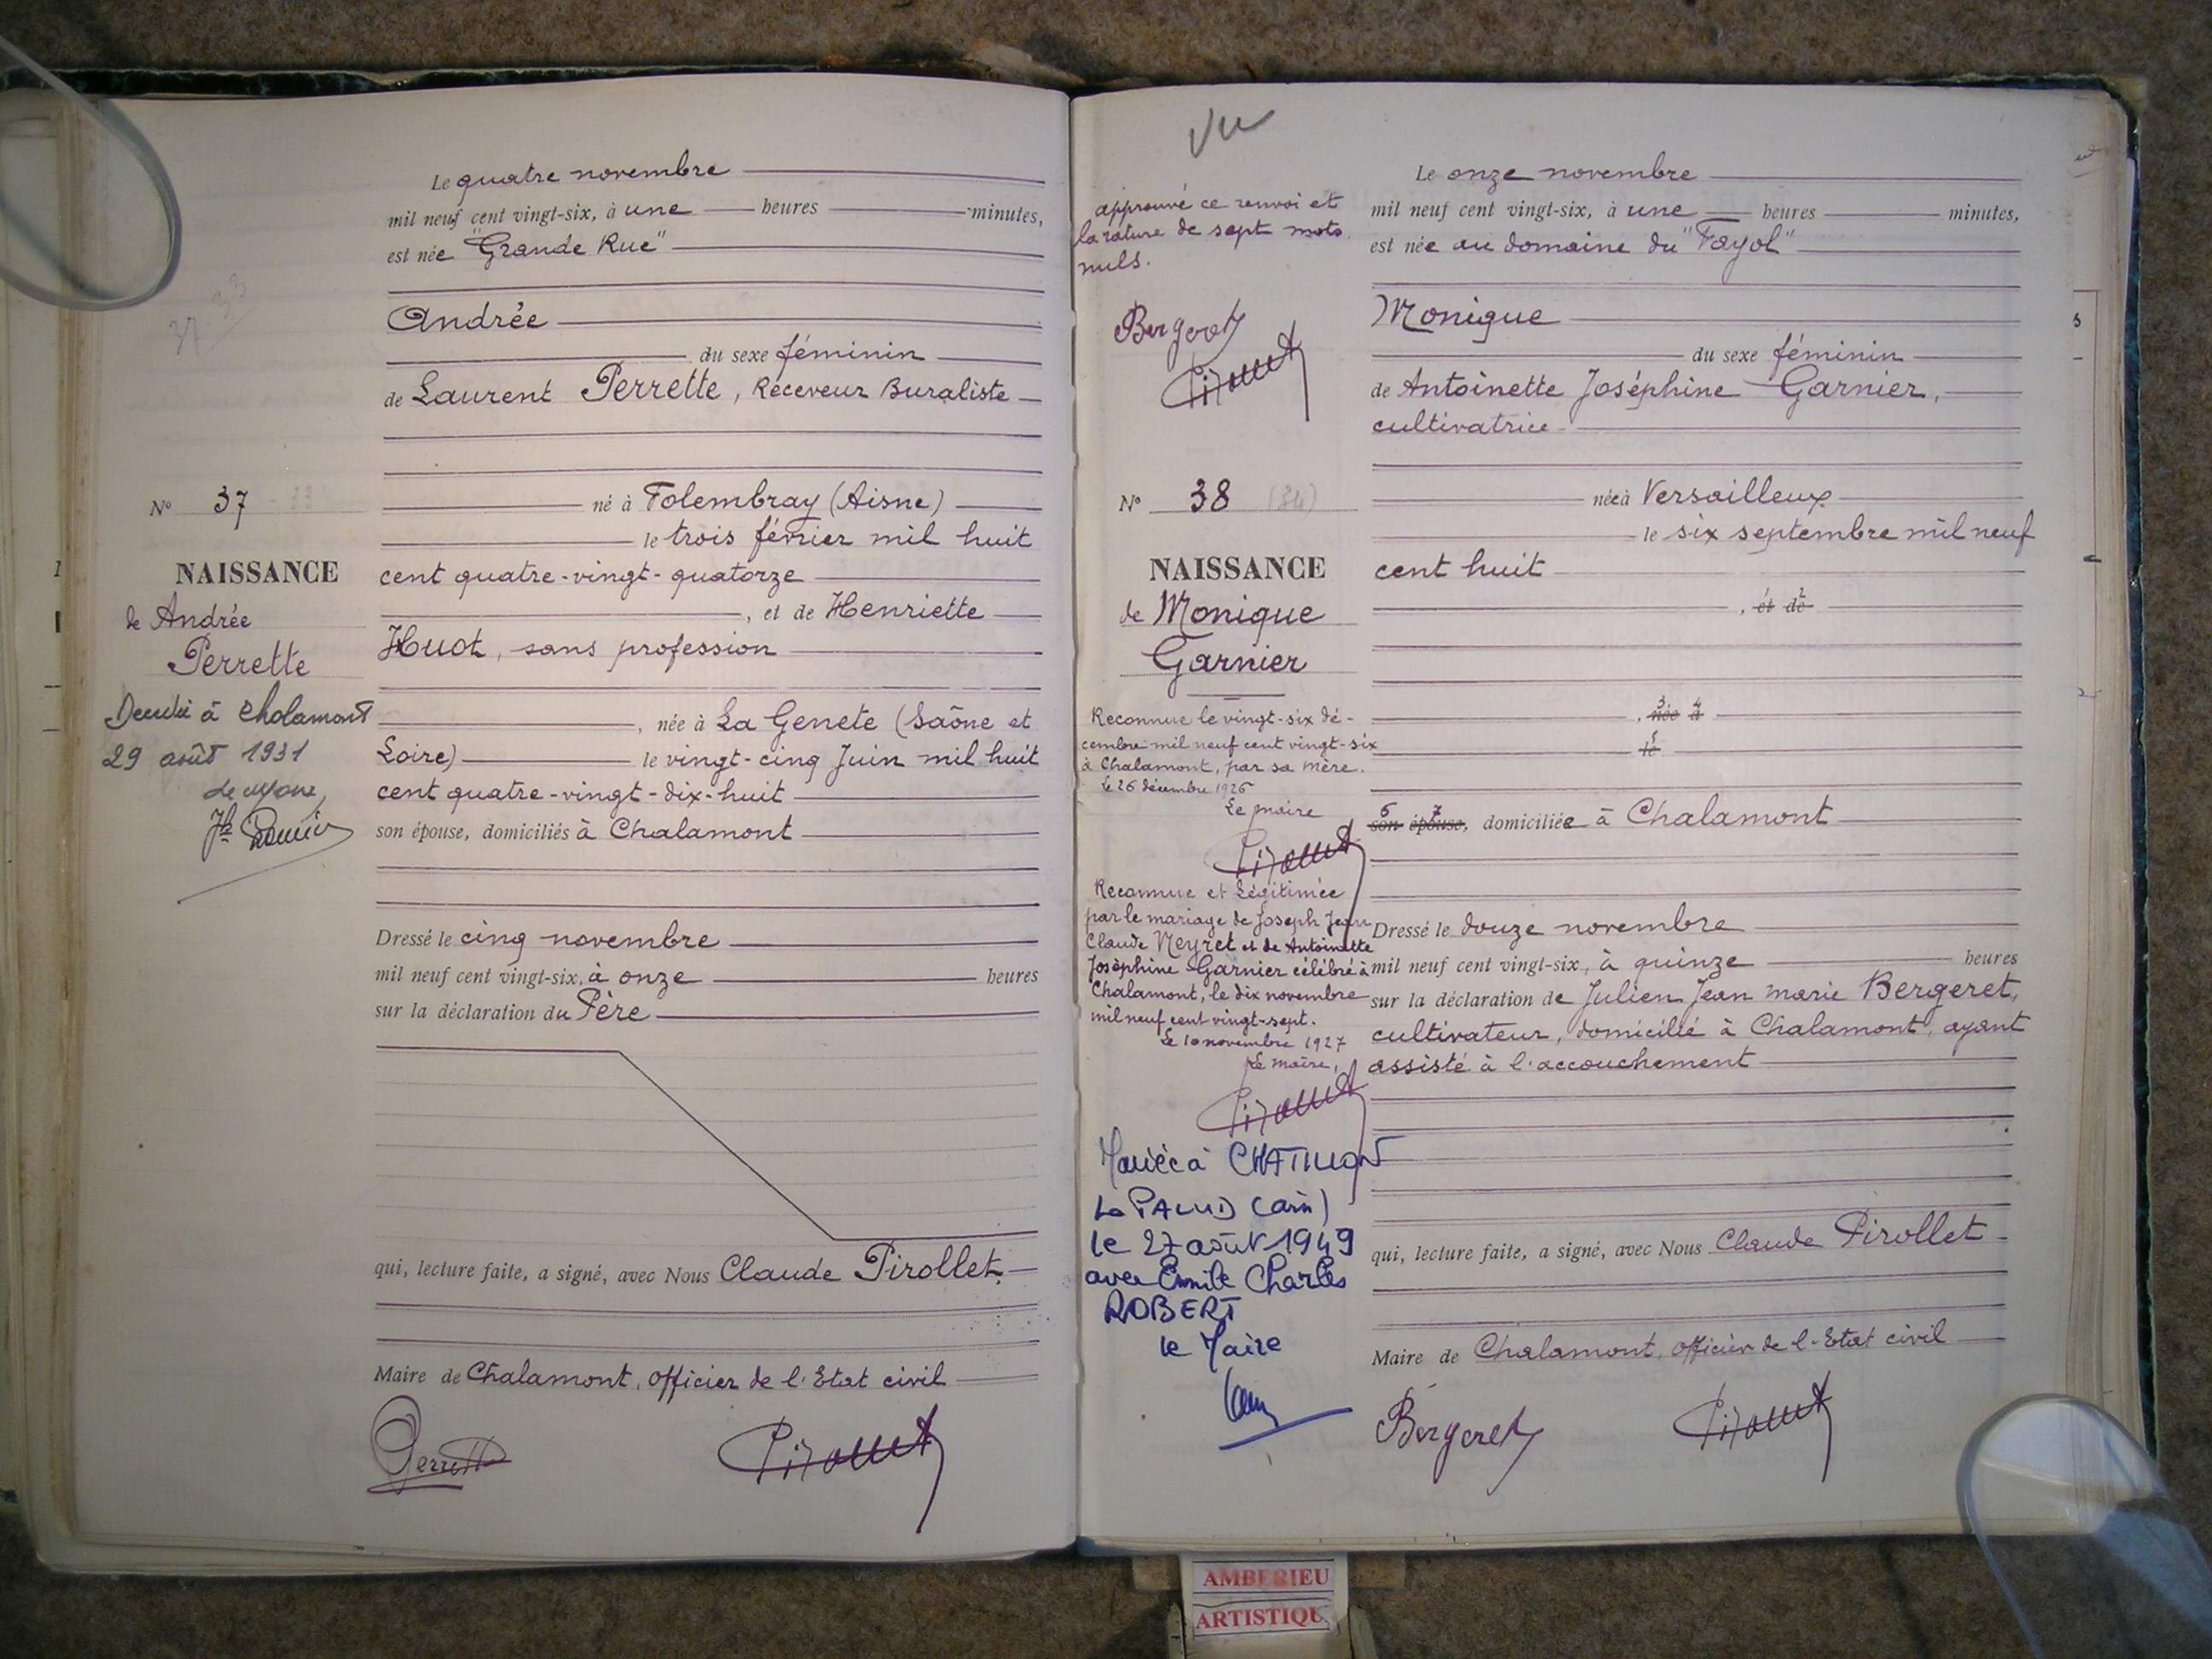 Le quatre novembre
mil neuf cent vingt-six, à une heures minutes,
est née "Grande Rue"
Andrée
du sexe féminin
de Laurent Perrette, Receveur Buraliste
né à Folembray (Aisne)
le trois février mil huit
cent quatre-vingt-quatorze
, et de Henriette
Huot, sans profession
, née à La Genete (Saône et
Loire) le vingt-cinq Juin mil huit
cent quatre-vingt-dix-huit
son épouse, domiciliés à Chalamont
Dressé le cinq novembre
mil neuf cent vingt-six, à onze heures
sur la déclaration du Père
qui, lecture faite, a signé, avec Nous Claude Pirollet
Maire de Chalamont, officier de l'Etat civil
N° 37
NAISSANCE
de Andrée
Perrette
à Chalamont
29 août 1931
Vu
approuvé ce renvoi et
la rature de sept mots
nuls.
Bergeret
N° 38 (34)
NAISSANCE
de Monique
Garnier
Reconnue le vingt-six dé-
cembre mil neuf cent vingt-six
à Chalamont, par sa mère.
le 26 décembre 1926
Le maire
Reconnue et Légitimée
par le mariage de Joseph Jean
Claude Neyret et de Antoinette
Joséphine Garnier célébré à
Chalamont, le dix novembre
mil neuf cent vingt-sept.
Le 10 novembre 1927
Le maire,
Mariée à CHATILLON
La PALUD (ain)
le 27 août 1949
avec Emile Charles
ROBERT
le Maire
Le onze novembre
mil neuf cent vingt-six, à une heures minutes,
est née au domaine du "Fayol"
Monique
du sexe féminin
de Antoinette Joséphine Garnier,
cultivatrice
née à Versailleux
le six septembre mil neuf
cent huit
, et de
, née à
le
son épouse, domiciliée à Chalamont
Dressé le douze novembre
mil neuf cent vingt-six, à quinze heures
sur la déclaration de Julien Jean marie Bergeret,
cultivateur, domicilié à Chalamont, ayant
assisté à l'accouchement
qui, lecture faite, a signé, avec Nous Claude Pirollet
Maire de Chalamont, officier de l'Etat civil
Bergeret
AMBERIEU
ARTISTIQU